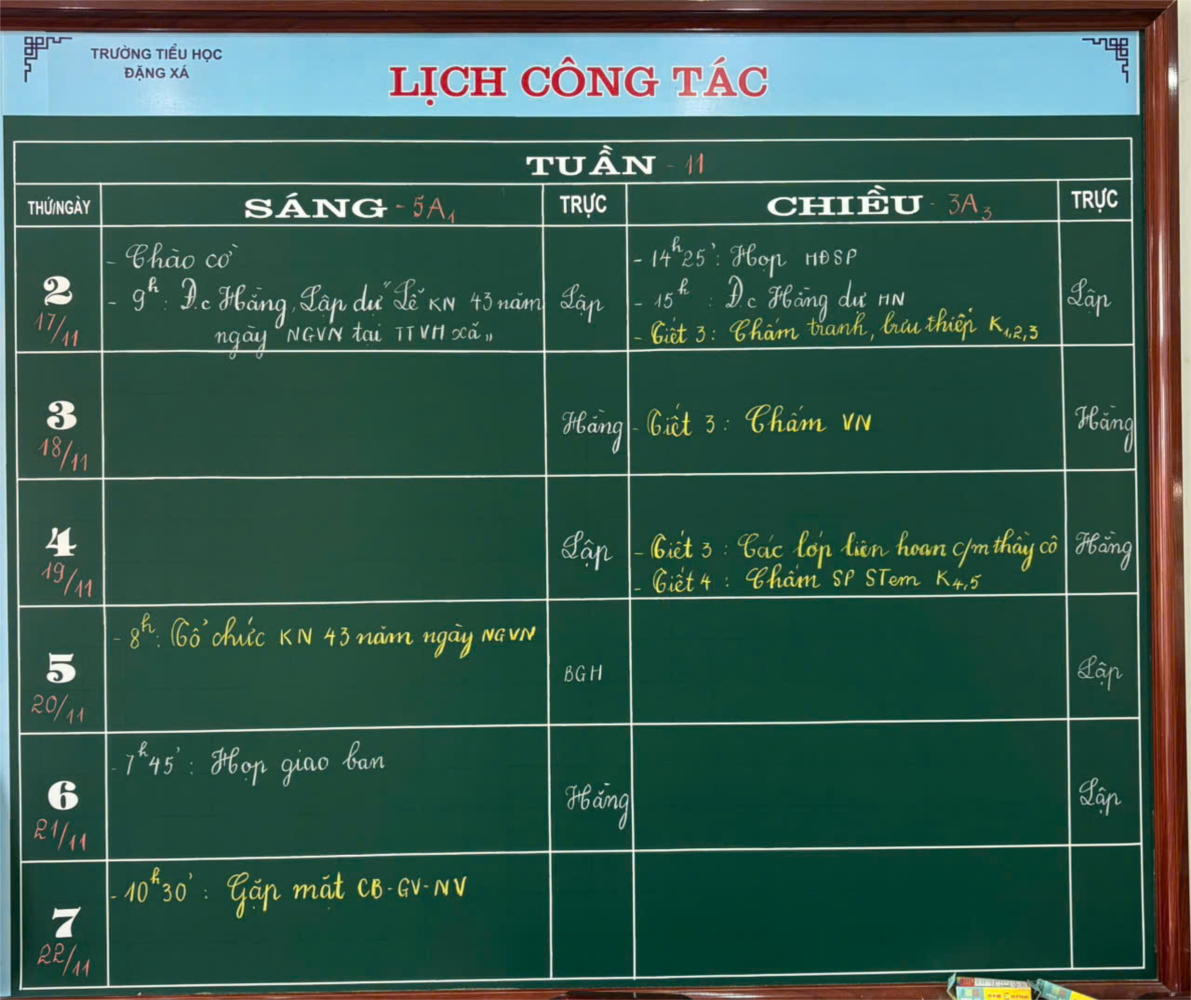 TRƯỜNG TIỂU HỌC
ĐẶNG XÁ
LỊCH CÔNG TÁC
TUẦN - 11
THỨ/NGÀY
SÁNG - 5A1
TRỰC
CHIỀU - 3A3
TRỰC
2
17/11
- Chào cờ
- 9h: Đ/c Hằng, Lập dự "Lễ KN 43 năm
ngày NGVN tại TTVH xã"
Lập
- 14h25': Họp HĐSP
- 15h : Đ/c Hằng dự HN
- Tiết 3: Chấm tranh, bưu thiếp K1,2,3
Lập
3
18/11
Hằng
- Tiết 3: Chấm VN
Hằng
4
19/11
Lập
- Tiết 3: Các lớp liên hoan c/m thầy cô
- Tiết 4: Chấm SP STem K4,5
Hằng
5
20/11
- 8h: Tổ chức KN 43 năm ngày NGVN
BGH
Lập
6
21/11
- 7h45': Họp giao ban
Hằng
Lập
7
22/11
- 10h30': Gặp mặt CB-GV-NV